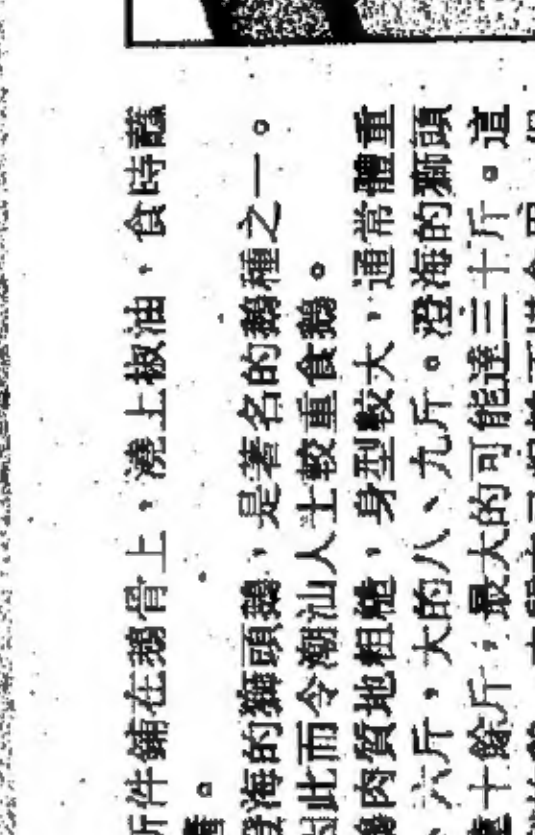 件鋪在鵝骨上，澆上椒油，食時蘸
。
海的獅頭鵝，是著名的鵝種之一。
此而令潮汕人士較重食鵝。
肉質地粗糙，身型較大，通常體重
、六斤，大的八、九斤。澄海的獅頭
重十餘斤，最大的可能達三十斤。這